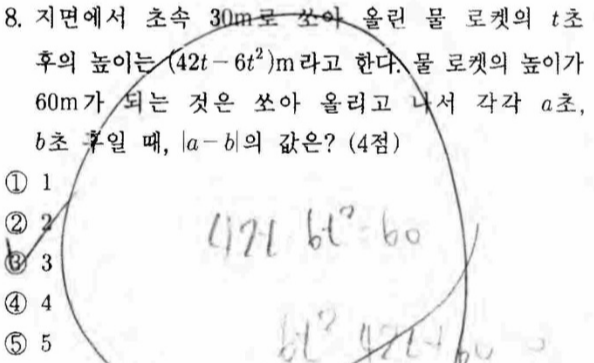 8. 지면에서 초속 30m로 쏘아 올린 물 로켓의 t초
후의 높이는 (42t-6t²)m라고 한다. 물 로켓의 높이가
60m가 되는 것은 쏘아 올리고 나서 각각 a초,
b초 후일 때, |a-b|의 값은? (4점)
① 1
② 2
③ 3
④ 4
⑤ 5
42t 6t²=60
6t² 42t+60